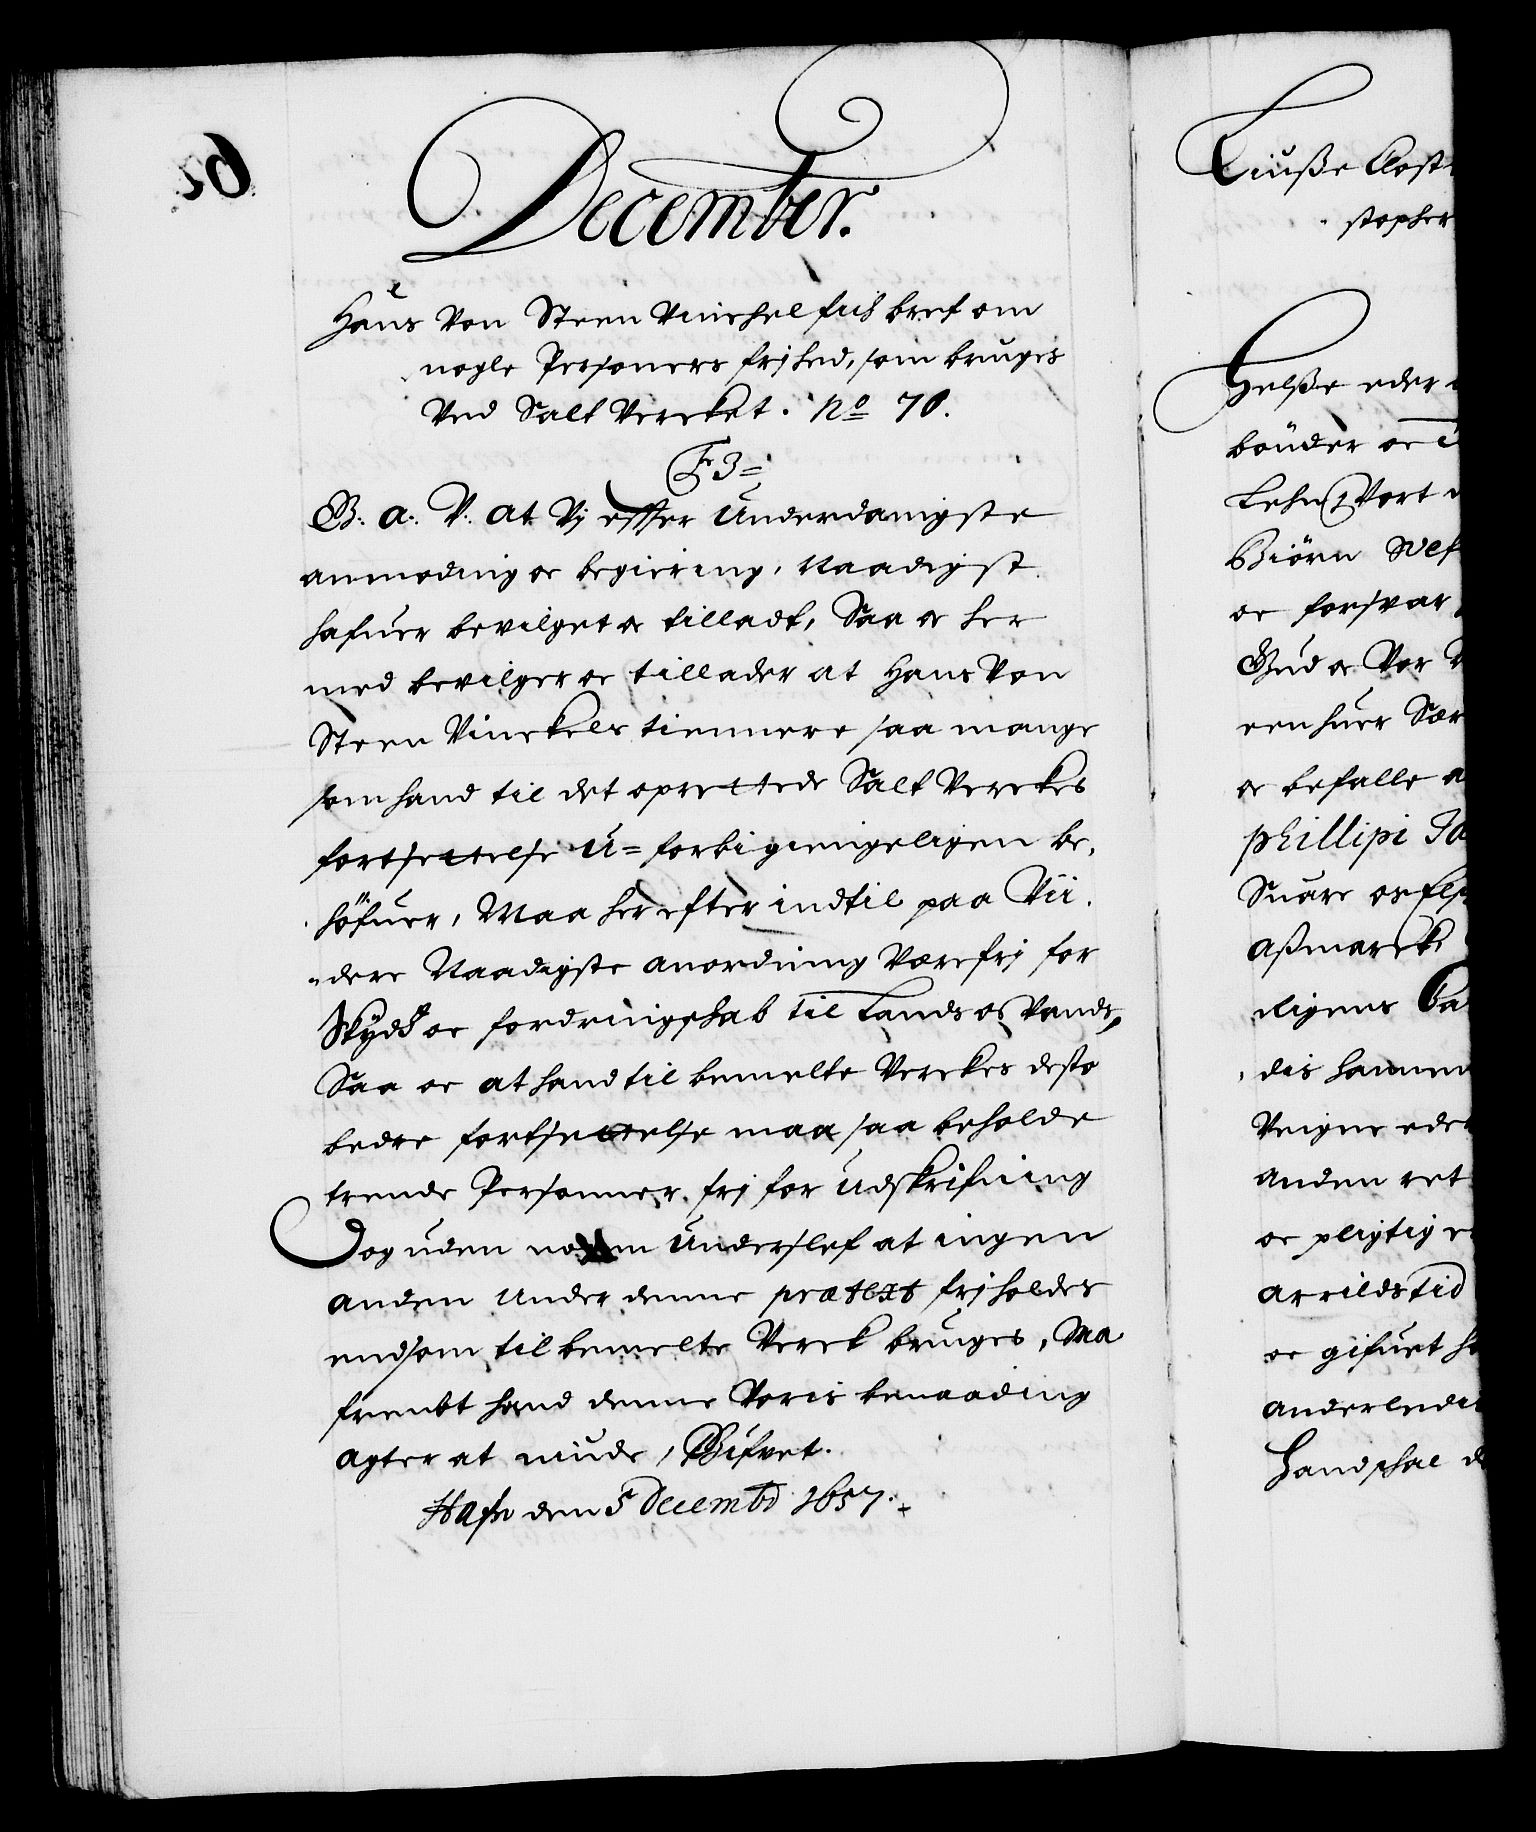 December.
Hans Von Steen Vinchel fick bref om
nogle Personers frihed, som bruges
Ved Salt Vercket. No 70.
F3=
G. a. V. at Vj effter Underdanigste
anmoding oc begiering, Naadigst
hafuer bevilget oc tilladt, Saa oc her
med bevilger oc tillader at Hans Von
Steen Vinckels tiennere saa mange
som hand til det oprettede Salt Verckes
fortsettelse U=forbigiengeligen be,
höfuer, Maa her efter indtil paa Vii.
dere Naadigste anordning Vere fri for
Skyds oc fordringskab til Lands oc Vands,
Saa oc at hand til bemelte Verckes desto
bedre fortsettelse maa saa beholde
trende Personner fri for Udskrifning
Dog uden Underslef at ingen
anden under denne prætext friholdes
end som til bemelte Verck bruges, Ma
frembt hand denne Voris benaading
agter at niude, Gifvet.
Hafn den 5 Decembr 1657.
Liusse Clost
stopher
Helsse eder
bönder oc
Lehn Vort
Biörn Ulf
oc forsvar
Gud oc Vor
een huer Sær
oc befalle
phillipi Ja
Suare oc
Assmarck
ligens
dis hannem
Veigre eder
anden ret
oc pligtig
Arrilds tid
oc gifuet
anderledis
Handskal